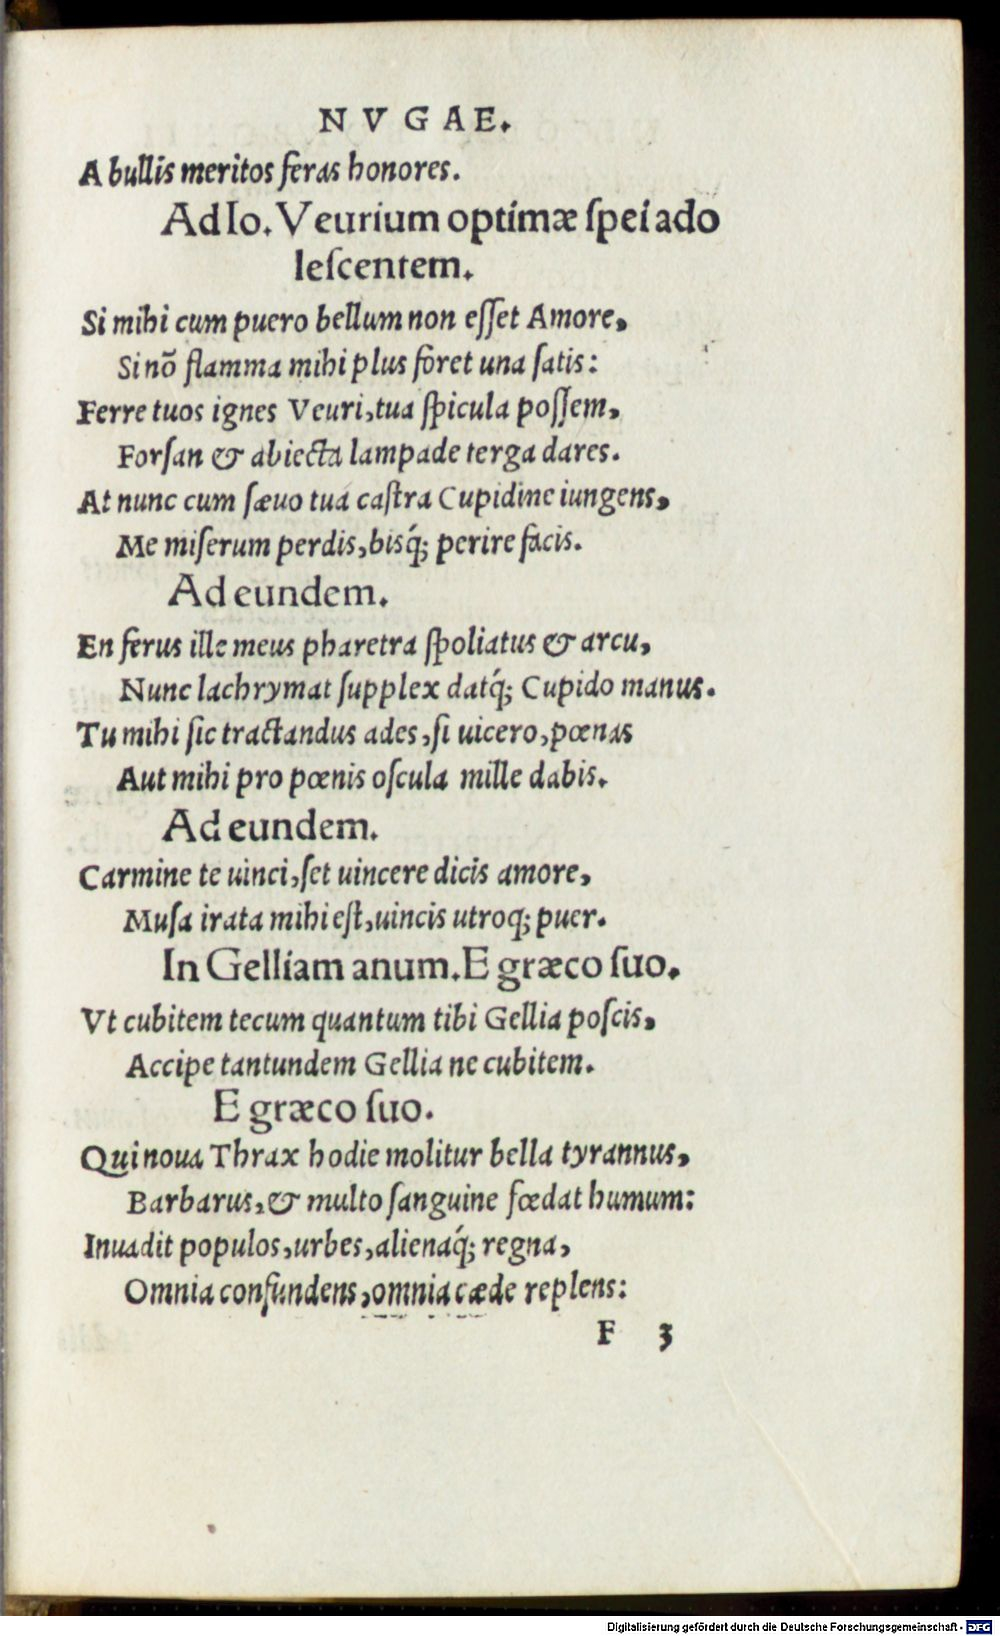 NVGAE.
A bullis meritos feras honores.
Ad Io. Veurium optimæ ſpei ado
leſcentem.
Si mihi cum puero bellum non eſſet Amore,
Si nõ flamma mihi plus foret una ſatis:
Ferre tuos ignes Veuri, tua ſpicula poſſem,
Forſan & abiecta lampade terga dares.
At nunc cum ſæuo tua caſtra Cupidine iungens,
Me miſerum perdis, bisq́; perire facis.
Ad eundem.
En ferus ille meus pharetra ſpoliatus & arcu,
Nunc lachrymat ſupplex datq́; Cupido manus.
Tu mihi ſic tractandus ades, ſi uicero, pœnas
Aut mihi pro pœnis oſcula mille dabis.
Ad eundem.
Carmine te uinci, ſet uincere dicis amore,
Muſa irata mihi eſt, uincis utroq; puer.
In Gelliam anum. E græco ſuo.
Vt cubitem tecum quantum tibi Gellia poſcis,
Accipe tantundem Gellia ne cubitem.
E græco ſuo.
Qui noua Thrax hodie molitur bella tyrannus,
Barbarus, & multo ſanguine fœdat humum:
Inuadit populos, urbes, alienaq́; regna,
Omnia confundens, omnia cæde replens:
F 3
Digitalisierung gefördert durch die Deutsche Forschungsgemeinschaft - DFG